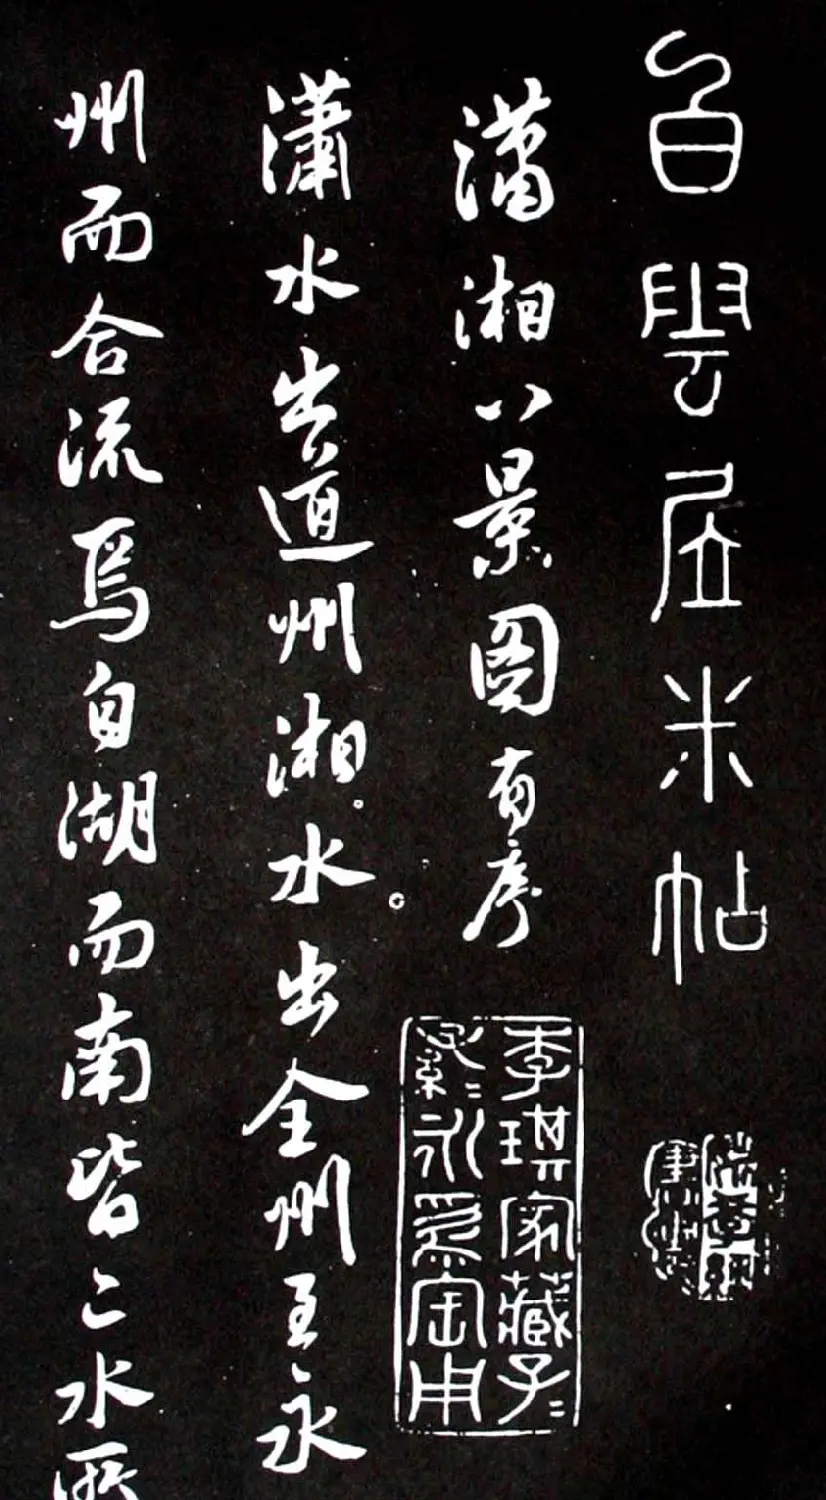 白雲居米帖
瀟湘八景圖有序
李琪家藏子〻
孫〻永爲寶用
瀟水出道州湘水出全州至永
州而合流焉自湖而南皆二水所